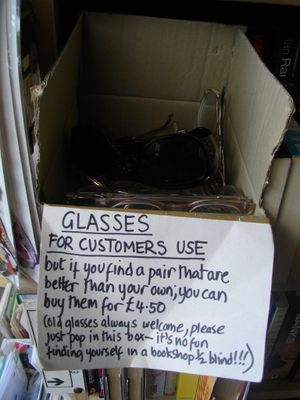 GLASSES
FOR CUSTOMERS USE
but if you find a pair that are
better than your own, you can
buy them for £4.50
(old glasses always welcome, please
just pop in this box - it's no fun
finding yourself in a bookshop ½ blind!!!)
Ian Ran